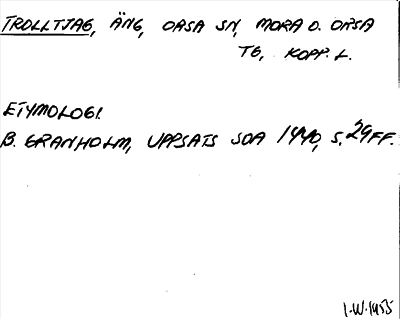 TROLLTJÄG, ÄNG, ORSA SN, MORA O. ORSA
TG, KOPP. L.
ETYMOLOGI.
B. GRANHOLM, UPPSATS SOA 1440, S. 29FF.
I.W. 1955